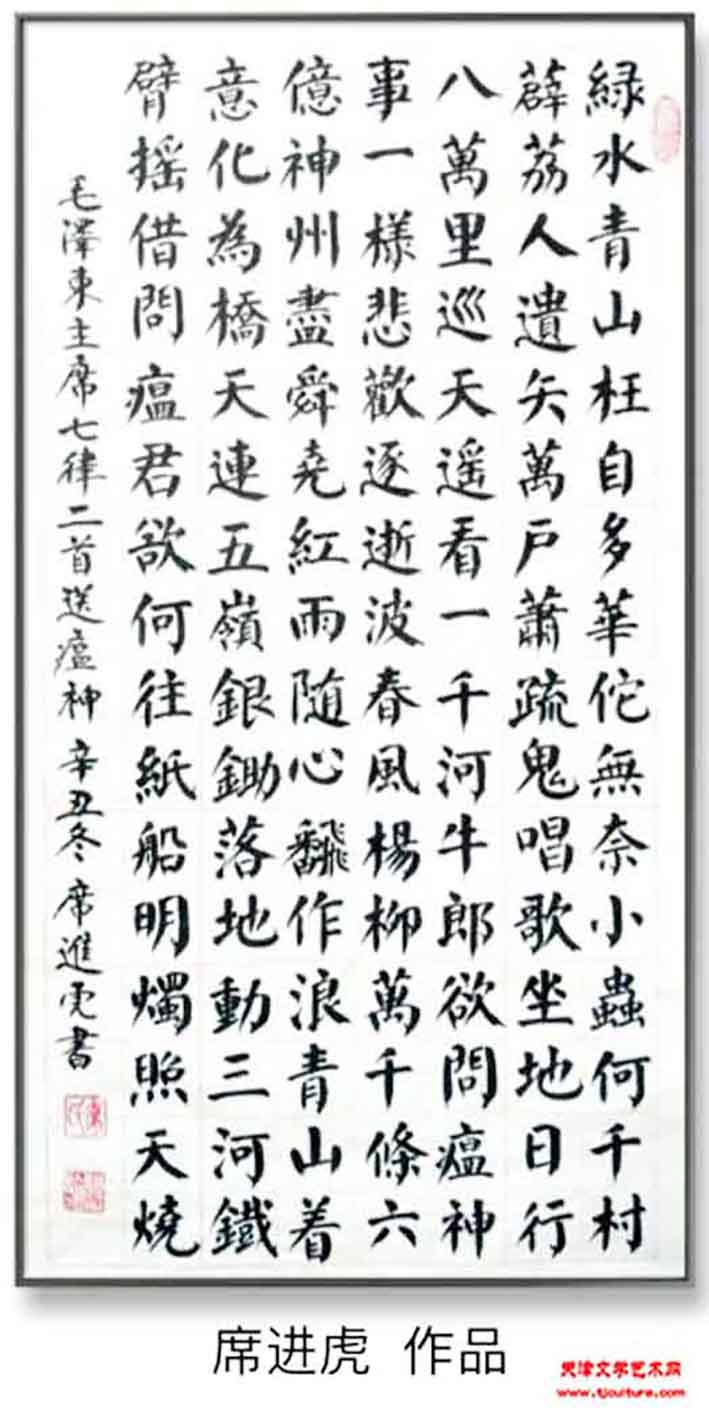 緑水青山枉自多華佗無奈小蟲何千村
薜荔人遺矢萬戶蕭疏鬼唱歌坐地日行
八萬里巡天遥看一千河牛郎欲問瘟神
事一樣悲歡逐逝波春風楊柳萬千條六
億神州盡舜堯紅雨随心翻作浪青山着
意化為橋天連五嶺銀鋤落地動三河鐵
臂摇借問瘟君欲何往紙船明燭照天燒
毛澤東主席七律二首送瘟神 辛丑冬 席進虎書
席进虎 作品
天津文学艺术网
www.tjculture.com